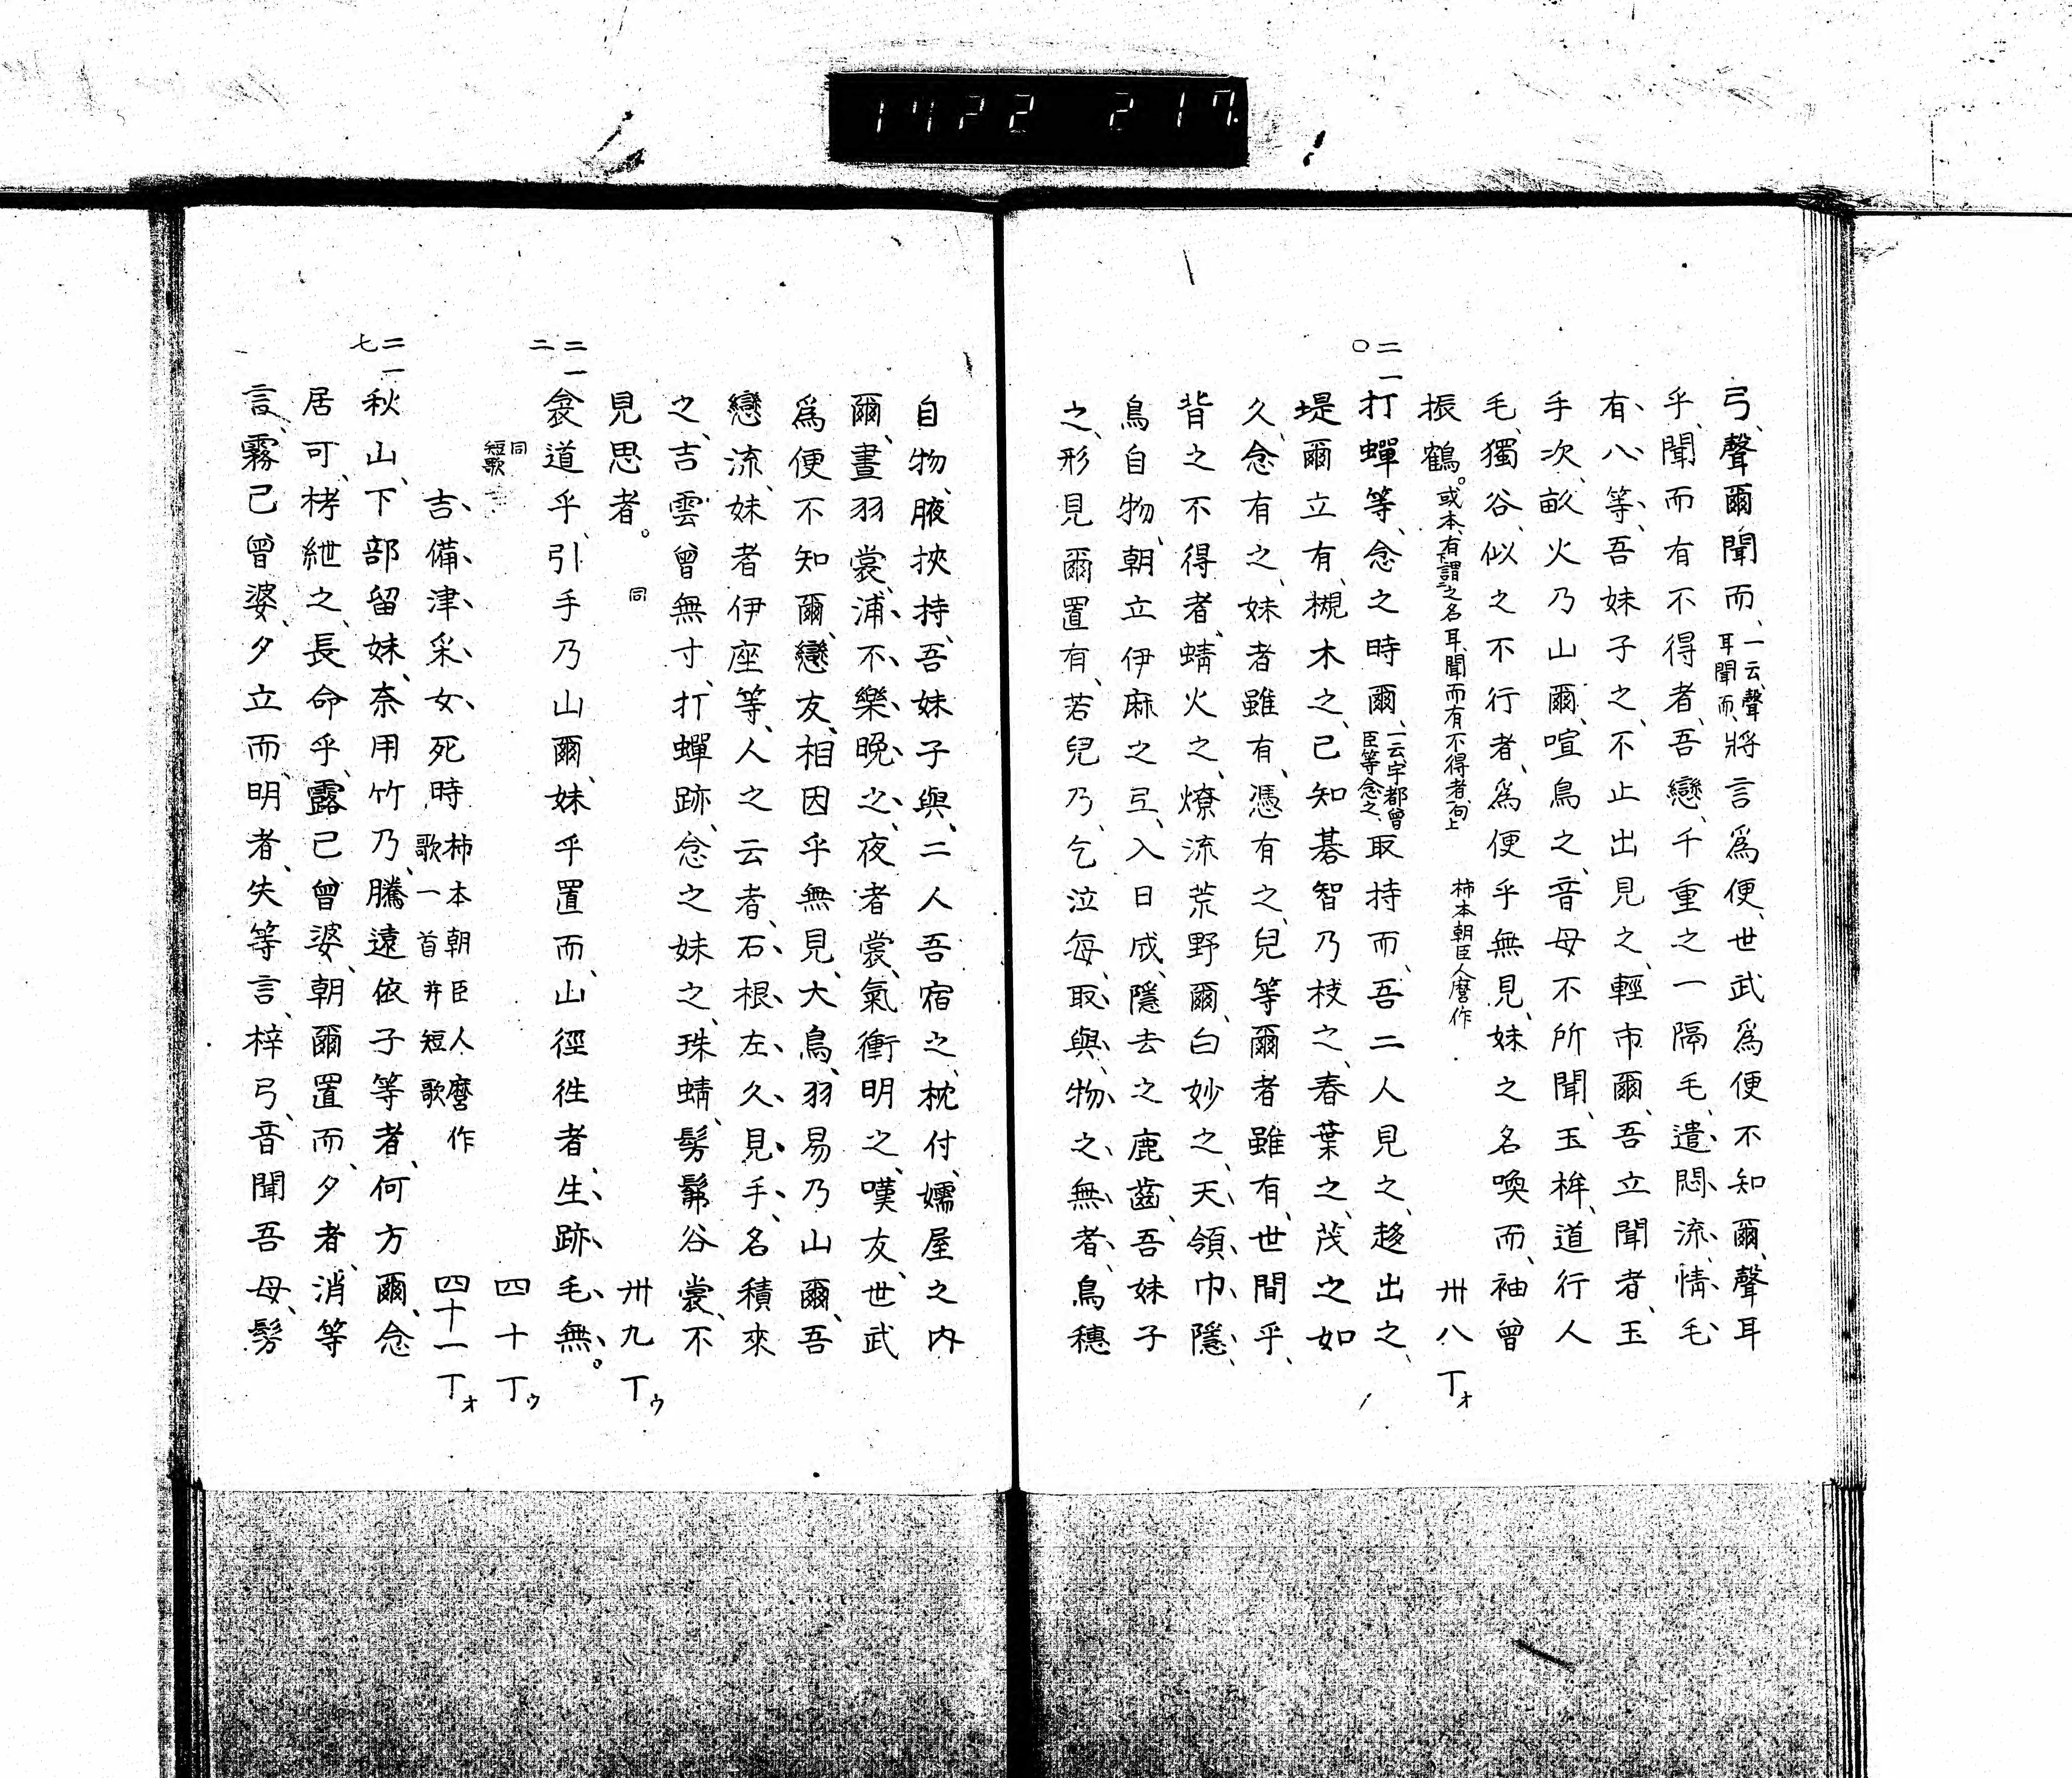 1422 217
弓、聲爾聞而、一云、聲耳聞而、將言爲便、世武爲便不知爾、聲耳
乎、聞而有不得者、吾戀、千重之一隔毛、遣悶流、情毛
有八等、吾妹子之、不止出見之、輕市爾、吾立聞者、玉
手次、畝火乃山爾、喧鳥之、音母不所聞、玉桙、道行人
毛、獨谷、似之不行者、爲便乎無見、妹之名喚而、袖曾
振鶴。或本、有謂之名耳聞而有不得者句上 柿本朝臣人麿作 卅八丁オ
二一〇
打蟬等、念之時爾、一云、宇都曾臣等念之、取持而、吾二人見之、趍出之、
堤爾立有、槻木之、己知碁智乃枝之、春葉之、茂之如
久、念有之、妹者雖有、憑有之、兒等爾者雖有、世間乎、
背之不得者、蜻火之、燎流荒野爾、白妙之、天領巾隱、
鳥自物、朝立伊麻之弖、入日成、隱去之鹿齒、吾妹子
之、形見爾置有、若兒乃、乞泣每、取與、物之無者、鳥穗
自物、腋挾持、吾妹子與、二人吾宿之、枕付、嬬屋之内
爾、晝羽裳、浦不樂晚之、夜者裳、氣衝明之、嘆友、世武
爲便不知爾、戀友、相因乎無見、大鳥、羽易乃山爾、吾
戀流、妹者伊座等、人之云者、石根左久見手、名積來
之、吉雲曾無寸、打蟬跡、念之妹之、珠蜻、髣髴谷裳、不
見思者。 同 卅九丁ウ
二一二
衾道乎、引手乃山爾、妹乎置而、山徑徃者、生跡毛無。
同短歌 四十丁ウ
吉備津采女死時 柿本朝臣人麿作歌一首并短歌 四十一丁オ
二一七
秋山、下部留妹、奈用竹乃、騰遠依子等者、何方爾、念
居可、栲紲之、長命乎、露己曾婆、朝爾置而、夕者、消等
言、霧己曾婆、夕立而、明者、失等言、梓弓、音聞吾母、髣